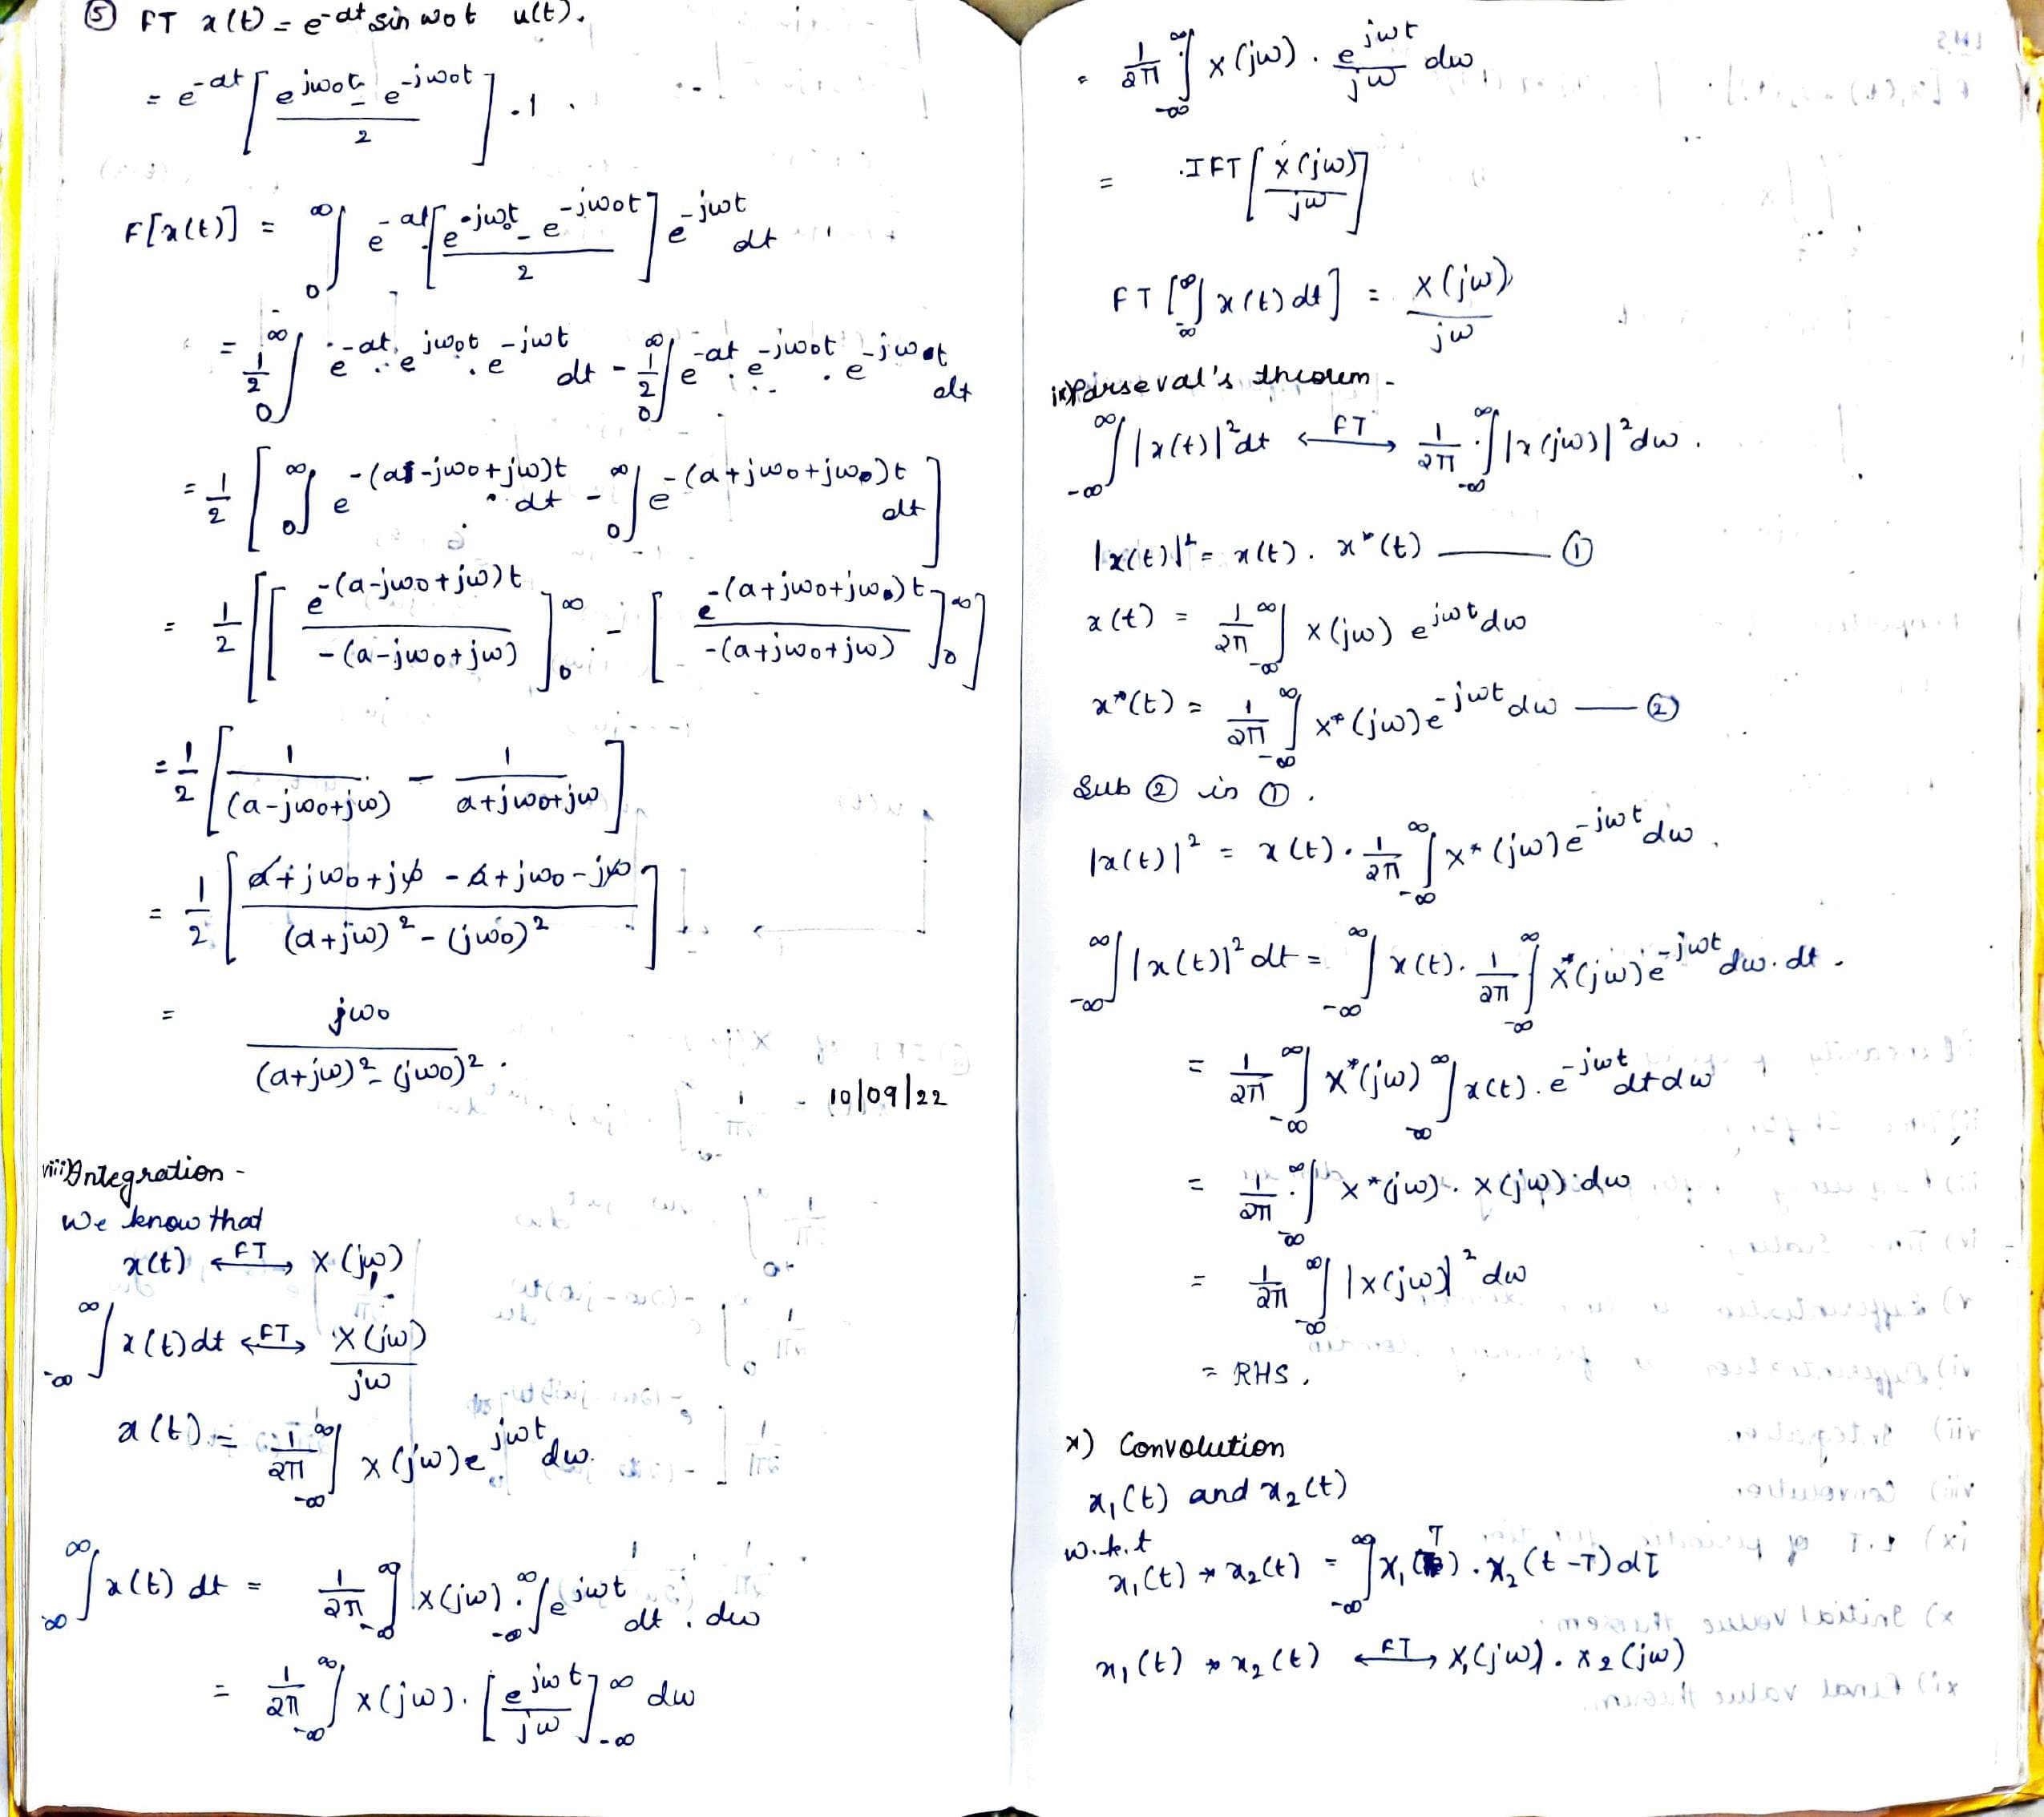 ⑤ FT x(t) = e^-at sin wot u(t).
= e^-at [ (e^jwot - e^-jwot) / 2 ] . 1
F[x(t)] = ∫_0^∞ e^-at [ (e^jwot - e^-jwot) / 2 ] e^-jwt dt
= 1/2 ∫_0^∞ e^-at . e^jwot . e^-jwt dt - 1/2 ∫_0^∞ e^-at . e^-jwot . e^-jwt dt
= 1/2 [ ∫_0^∞ e^-(a-jwo+jw)t dt - ∫_0^∞ e^-(a+jwo+jw)t dt ]
= 1/2 [ [ e^-(a-jwo+jw)t / -(a-jwo+jw) ]_0^∞ - [ e^-(a+jwo+jw)t / -(a+jwo+jw) ]_0^∞ ]
= 1/2 [ 1 / (a-jwo+jw) - 1 / a+jwo+jw ]
= 1/2 [ (a+jwo+jw - a+jwo-jw) / (a+jw)² - (jwo)² ]
= jwo / (a+jw)² - (jwo)² .
10/09/22
viii) Integration -
We know that
x(t) ←FT→ X(jω)
∫_-∞^∞ x(t) dt ←FT→ X(jω) / jω
x(t) = 1/2π ∫_-∞^∞ x(jω) e^jωt dω.
∫_-∞^∞ x(t) dt = 1/2π ∫_-∞^∞ x(jω) . ∫_-∞^∞ e^jωt dt . dω
= 1/2π ∫_-∞^∞ x(jω) . [ e^jωt / jω ]_-∞^∞ dω
= 1/2π ∫_-∞^∞ x(jω) . e^jωt / jω dω
= IFT [ x(jω) / jω ]
FT [ ∫_-∞^∞ x(t) dt ] = x(jω) / jω
ix) Parseval's theorem -
∫_-∞^∞ |x(t)|² dt ←FT→ 1/2π . ∫_-∞^∞ |x(jω)|² dω .
|x(t)|² = x(t) . x*(t) —— ①
x(t) = 1/2π ∫_-∞^∞ x(jω) e^jωt dω
x*(t) = 1/2π ∫_-∞^∞ x*(jω) e^-jωt dω — ②
Sub ② in ① .
|x(t)|² = x(t) . 1/2π ∫_-∞^∞ x*(jω) e^-jωt dω .
∫_-∞^∞ |x(t)|² dt = ∫_-∞^∞ x(t) . 1/2π ∫_-∞^∞ x*(jω) e^-jωt dω . dt .
= 1/2π ∫_-∞^∞ x*(jω) ∫_-∞^∞ x(t) . e^-jωt dt dω
= 1/2π . ∫_-∞^∞ x*(jω) . x(jω) dω
= 1/2π ∫_-∞^∞ |x(jω)|² dω
= RHS .
x) Convolution
x₁(t) and x₂(t)
w.k.t
x₁(t) * x₂(t) = ∫_-∞^∞ x₁(T) . x₂(t-T) dT
x₁(t) * x₂(t) ←FT→ X₁(jω) . X₂(jω)